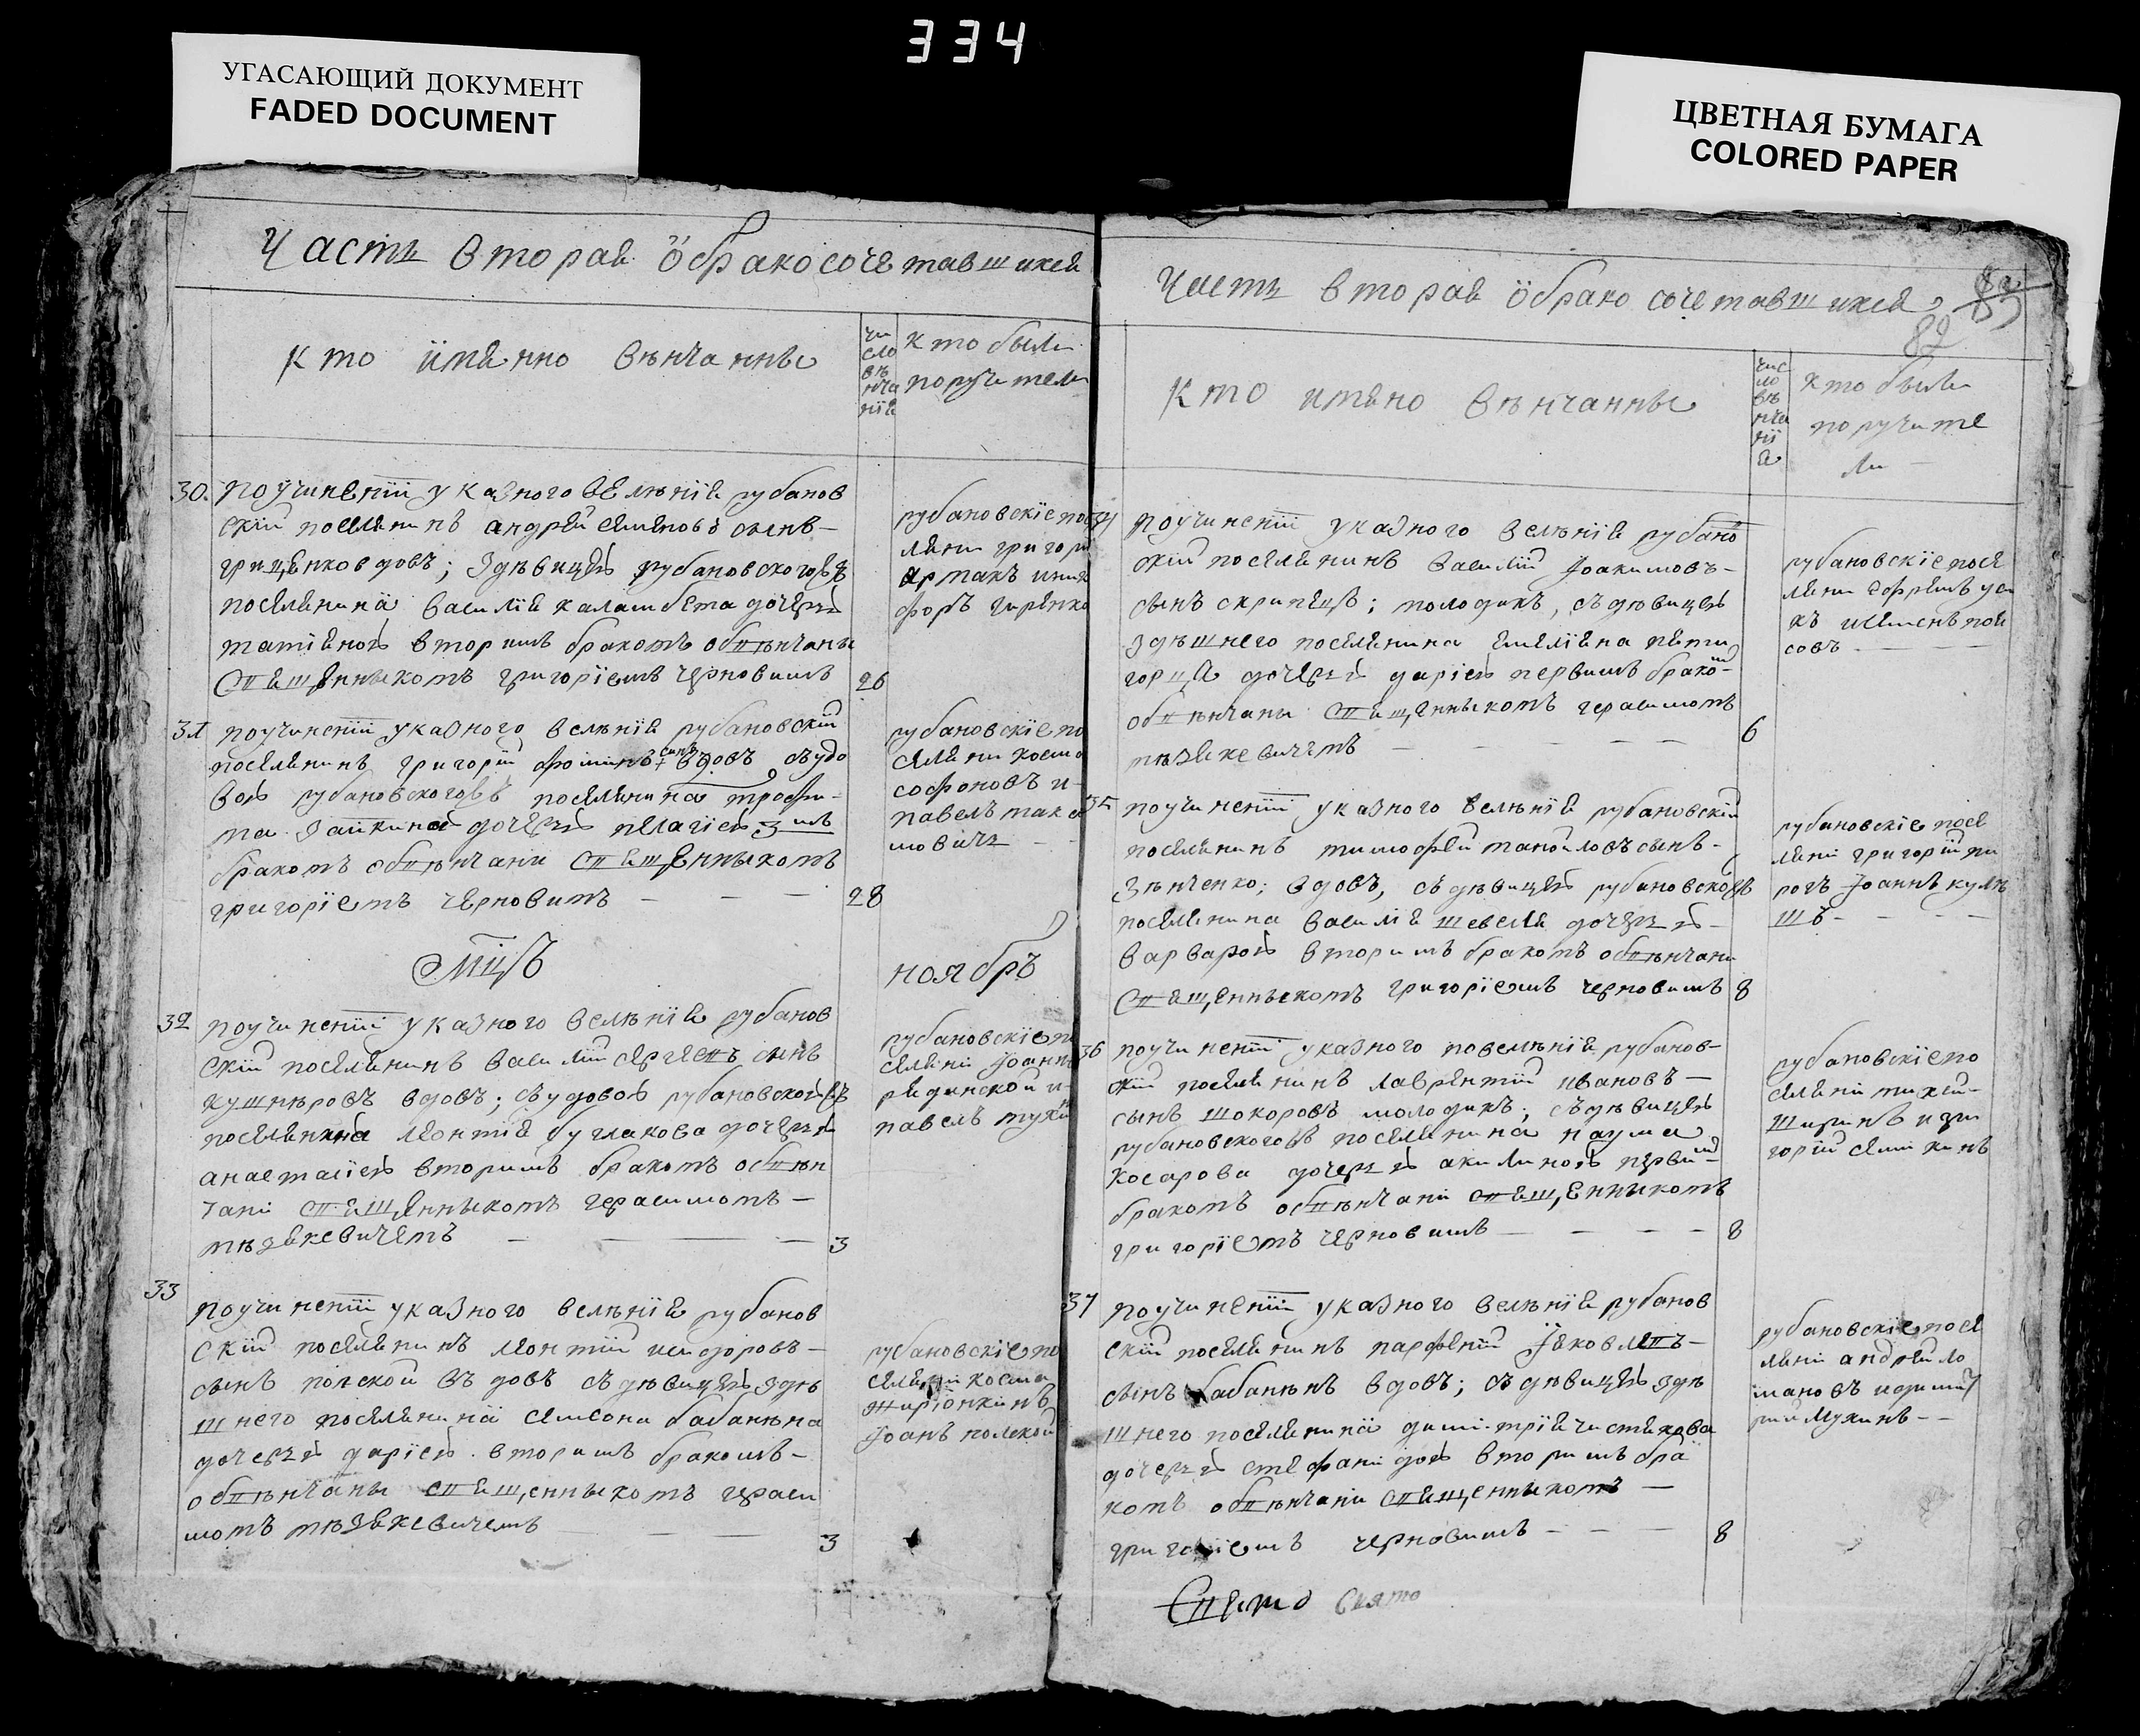 334
УГАСАЮЩИЙ ДОКУМЕНТ
FADED DOCUMENT
ЦВЕТНАЯ БУМАГА
COLORED PAPER
Часть вторая ӧбракосочетавшихся
Кто имянно вѣнчанны
чи
сло
вѣ
нча
нїя
кто были
поручители
30. поучиненїи указного велѣнїя рубанов
скїй поселянинъ андрѣй семеновъ сынъ –
гриценко вдовъ; здѣвицею рубановскогожъ
поселянина василїя калашбета дочерью
татїяною вторимъ бракомъ обвѣнчаны
священныкомъ григорїемъ черновимъ 26
рубановскїе посе
ляни григори
артюхъ
31 поучиненїи указного велѣнїя рубановскїй
поселянинъ григорїй фоминъ синъ вдовъ съудо
вою рубановскогожъ поселянина трофи-
ма заикина дочерью пелагїею 3 имъ
бракомъ обвѣнчани священныкомъ
григорїемъ черновимъ – – – 28
рубановскїе по
селяни косма
софоновъ и –
павелъ макси
мовичъ – –
мцъ ноябръ
32 поучиненїи указного велѣнїя рубанов
скїй поселянинъ василїй сергѣевъ сынъ
кушнѣровъ вдовъ; съудовою рубановскогожъ
поселянина леонтїя буглакова дочерью
анастасїею вторимъ бракомъ обвѣн
чани священныкомъ герасимомъ –
мѣзякевичемъ – – – 3
рубановскїе по
селяни Іоаннъ
рединской и –
павелъ
33 поучиненїи указного велѣнїя рубанов
скїй поселянинъ леонтїй исидоровъ –
сынъ полской въдовъ съдѣвицею здѣ
шнего поселянина самсона бабанѣна
дочерью дарїею вторимъ бракомъ –
обвѣнчаны священныкомъ гераси
момъ мѣзякевичемъ – – – 3
рубановскїе по
селяни косма
жирїонкинъ
Іоанъ полской
Часть вторая ӧбракосочетавшихся
82
Кто имяно вѣнчанны
чис
ло
вѣ
нча
нї
я
кто были
поручите
ли –
34 поучиненїи указного велѣнїя рубано
скїй поселянинъ василїй Іоакимовъ –
сынъ скрипецъ; молодикъ, съдѣвицею
здѣшнего поселянина емелїяна пяти
горца дочерью дарїею первимъ брако –
обвѣнчаны священныкомъ герасимомъ
мѣзякевичемъ – – – – – 6
рубановскїе посе
ляни ефремъ уса
къ исеменъ поя
совъ – – – –
35 поучиненїи указного велѣнїя рубановскїй
поселянинъ тимофѣй маноиловъ сынъ –
зѣнченко; вдовъ, съдѣвицею рубановскожъ
поселянина василїя шевеля дочерью –
варварою вторимъ бракомъ обвѣнчани
священныкомъ григорїемъ черновимъ 8
рубановскїе посе
ляни григорїй пи
рогъ Іоаннъ кулѣ
шъ – – –
36 поучиненїи указного повелѣнїя рубанов-
скїй поселянинъ лаврентїй ивановъ –
сынъ шокоровъ молодикъ; съдѣвицею
рубановскогожъ поселянина наума
косарова дочерью акилиною перви
бракомъ обвѣнчани священныкомъ
григорїемъ черновимъ – – – – 8
рубановскїе по
селяни тихей –
ширинъ игри
горїй семикинъ
37 поучиненїи указного велѣнїя рубанов
скїй поселянинъ парфенїй Іяковлевъ –
сынъ бабанѣнъ вдовъ; съдѣвицею здѣ
шнего поселянина димитрїя чистякова
дочерью стефанидою вторимъ бра
комъ обвѣнчани священныкомъ –
григорїемъ черновимъ – – – 8
рубановскїе посе
ляни андрѣй ло
мановъ идими
рий мухинъ – –
Свято Свято